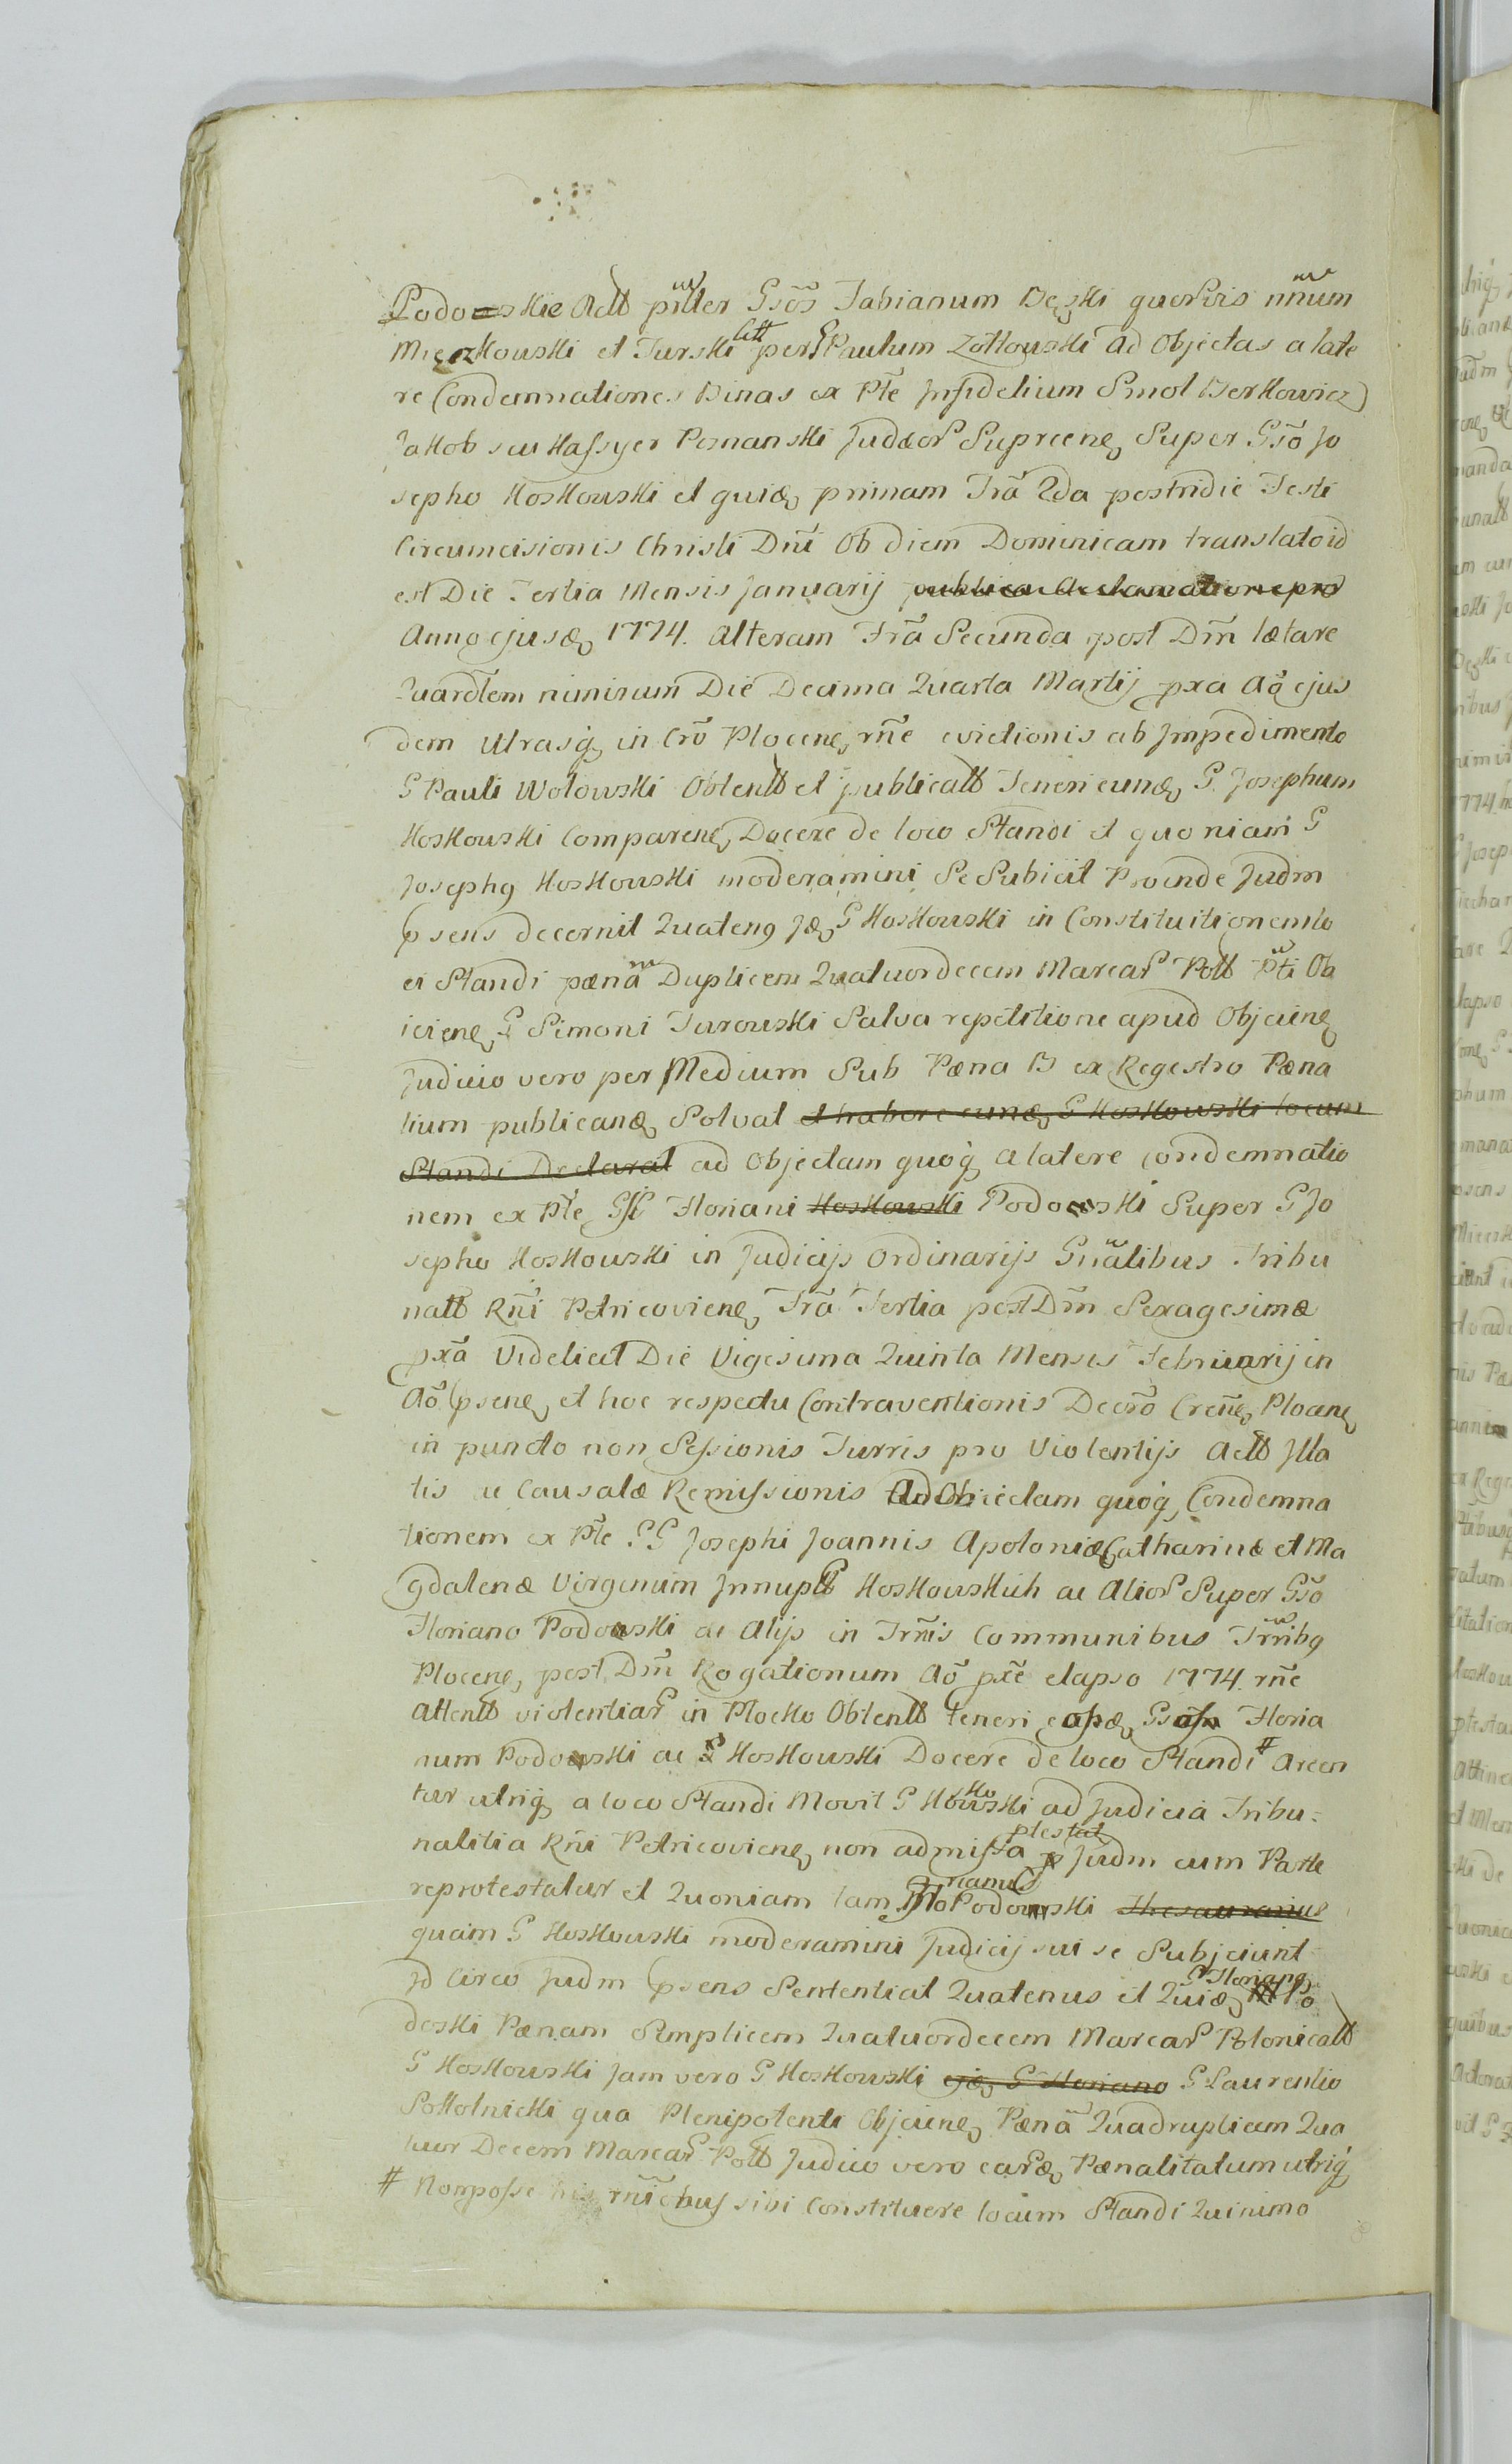 Podoskie Actt pntter Gsōs Fabianum Beski quorvis nm̃um
Mieczkowski et Turski Citt per G Paulum Zołtowski ad Objectas a late
re Condemnationes Binas ex Pt̃e Infidelium Smol Berkowicz
Jakob seu Kassyer Poznanski Judæor Supreeneȝ Super Gsō Jo
sepho Koskowski et quidȝ primam Frā 2da postridie Festi
Circumcisionis Christi Dn̄i Ob diem Dominicam translato id
est Die Tertia Mensis Januarij publica acclamatione pro
Anno ejusdȝ 1774. Alteram Frā Secunda post Dm̄ lætare
Quardlem nimirum Die Decima Quarta Martij pxa Aō ejus
dem Utrasqȝ in Crō Ploceneȝ rñe evictionis ab Impedimento
G Pauli Wołowski Obtentt et publicatt Teneri eundȝ G. Josephum
Koskowski Compareneȝ Docere de loco Standi et quoniam G
Josephg Koskowski moderamini Se Subiicit Proinde Judm
psens decernit Quateng Jdȝ G Koskowski in Constituitionem lo
ci Standi pænā Duplicem Quatuordecem Marcar Pott Pt̃i Ob
icieneȝ G Simoni Turowski Salva repetitione apud Objcieneȝ
Judicio vero per Medium Sub Pæna B ex Regestro Pæna
lium publicandȝ Solvat et habere eundȝ G Koskowski locum
Standi Declarat ad Objectam quoqȝ a latere Condemnatio
nem ex Pt̃e G Floriani Koskowski Podoski Super G Jo
sepho Koskowski in Judicijs Ordinarijs Gn̄alibus Tribu
natt Rn̄i Petricovieneȝ Frā Tertia post Dm̄ Sexagesimæ
pxā Videlicet Die Vigesima Quinta Mensis Februarij in
Aō pseneȝ et hoc respectu Contraventionis Decrō Crenȝ Ploceneȝ
in puncto non Sessionis Turris pro Violentijs Actt Illa
tis ac Causatæ Remissionis Ad Obiectam quoqȝ Condemna
tionem ex Pt̃e GG Josephi Joannis Apoloniæ Catharinæ et Ma
gdalenæ Virginum Innupt Koskowskich ac Alior Super Gsō
Floriano Podoski ac Alijs in Trñis Communibus Trr̃ibg
Ploceneȝ post Dm̄ Rogationum Aō pxē elapso 1774. rñe
attentt violentiar in Płocko Obtentt teneri eosdȝ Gsos Floria
num Podoski ac G Koskowski Docere de loco Standi # Arcen
tur utriqȝ a loco Standi Movit G Koskowski ad Judicia Tribu:
nalitia Rn̄i Petricovieneȝ non admissa ptestat Judm cum Parte
reprotestatur et Quoniam tam G Florianus Podoski Thesaurarius
quam G Koskowski moderamini Judicij sui se Subjciunt
Jd Circo Judm psens Sententiat Quatenus et Quidȝ G Floriang Po
doski Pænam Simplicem Quatuordecem Marcar Polonicatt
G Koskowski Jam vero G Koskowski ejdȝ G Floriano G Laurentio
Sokolnicki qua Plenipotenti Objcieneȝ Pænā Quadruplicem Qua
tuor Decem Marcar Pott Judicio vero eardȝ Pænalitatum utriqȝ
# Non posse rñibus sibi Constituere locum Standi Quinimo